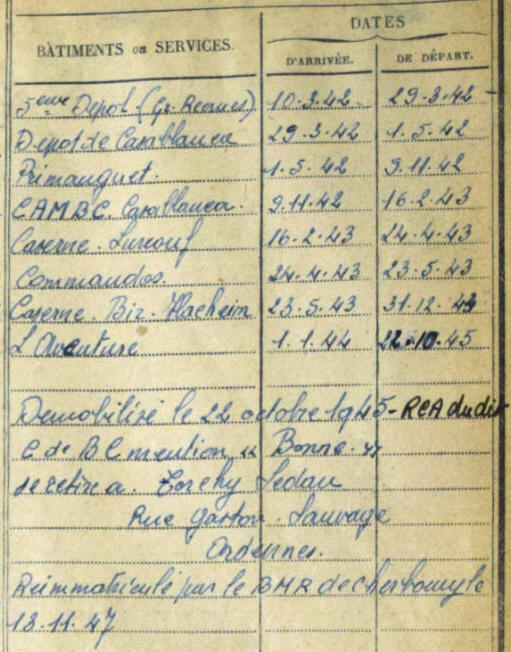 BÀTIMENTS ou SERVICES. DATES
D'ARRIVÉE. DE DÉPART.
5eme Depot (Gr. Recrues) 10.3.42 29.3.42
Depot de Casablanca 29.3.42 1.5.42
Primauguet. 1.5.42 9.11.42
CAMBC. Casablanca. 9.11.42 16.2.43
Caserne. Surcouf 16.2.43 24.4.43
Commandos. 24.4.43 23.5.43
Caserne. Bir. Hacheim 23.5.43 31.12.43
L'Aventure 1.1.44 22.10.45
Demobilisé le 22 octobre 1945 - RCA dudit
C de BC mention " Bonne "
se retire a. Torchy Sedan
Rue Gaston. Sauvage
Ardennes.
Reimmatriculé par le BMR de Cherbourg le
18.11.47